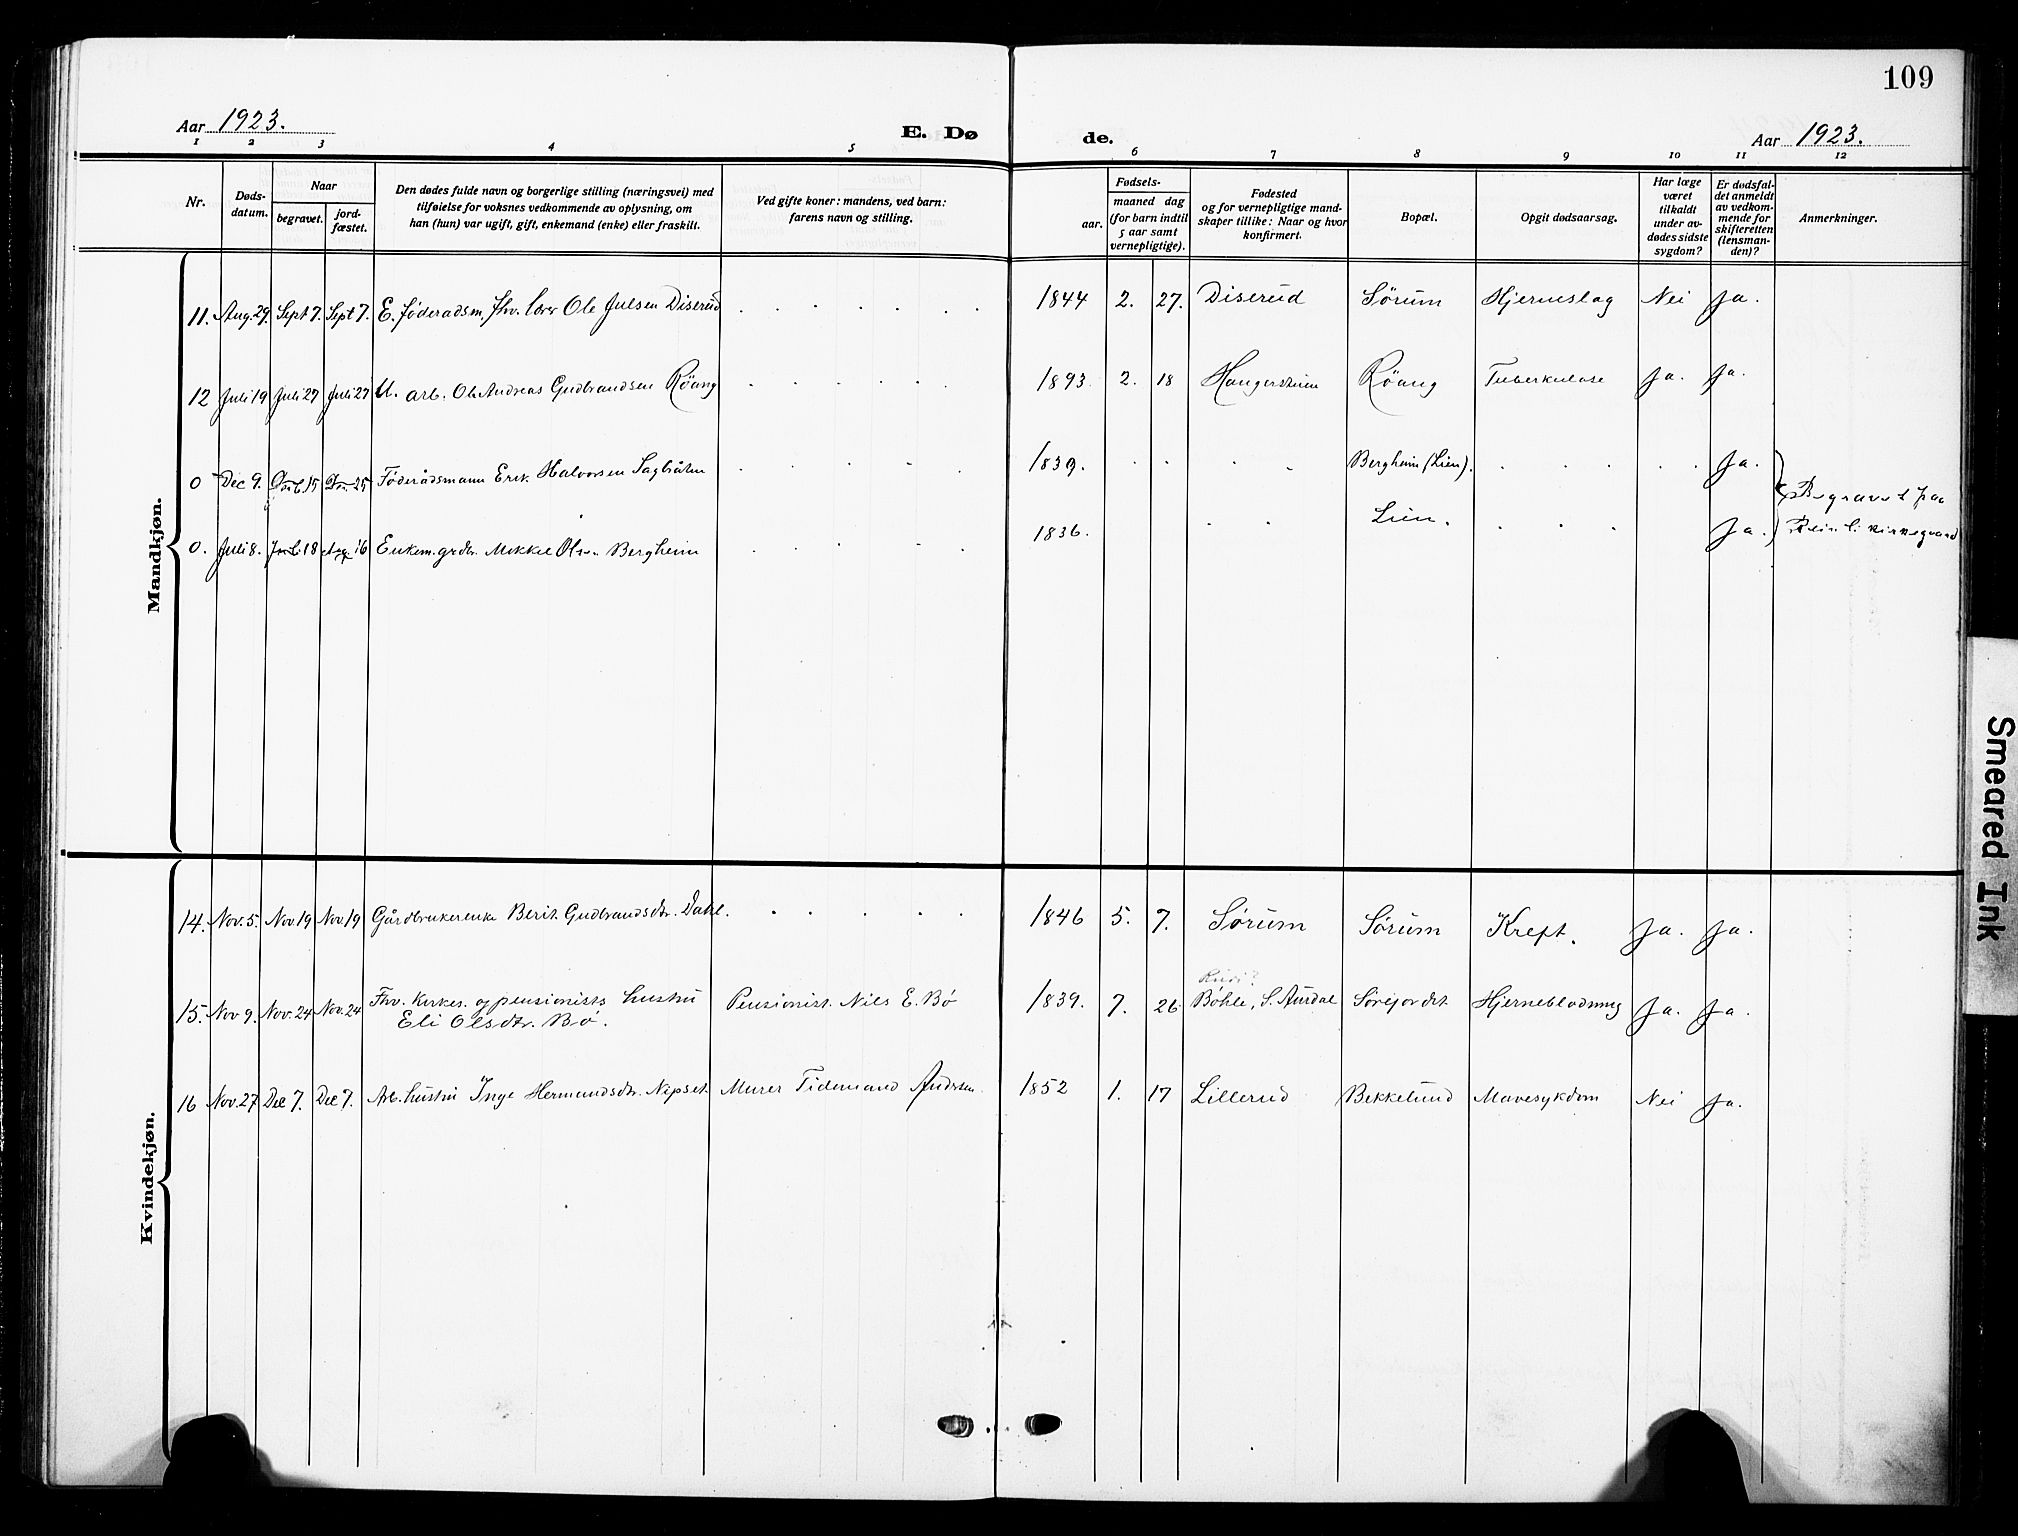 109
Aar 1923.
E. Dø
de.
Aar 1923.
1 2 3 4 5 6 7 8 9 10 11 12
Nr.
Døds-
datum.
Naar
begravet.
jord-
fæstet.
Den dødes fulde navn og borgerlige stilling (næringsvei) med
tilføielse for voksnes vedkommende av oplysning, om
han (hun) var ugift, gift, enkemand (enke) eller fraskilt.
Ved gifte koner: mandens, ved barn:
farens navn og stilling.
Fødsels-
aar.
maaned dag
(for barn indtil
5 aar samt
vernepligtige).
Fødested
og for vernepligtige mand-
skaper tillike: Naar og hvor
konfirmert.
Bopæl.
Opgit dødsaarsag.
Har læge
været
tilkaldt
under av-
dødes sidste
sygdom?
Er dødsfal-
det anmeldt
av vedkom-
mende for
skifteretten
(lensman-
den)?
Anmerkninger.
Mandkjøn.
11. Aug. 29. Sept 7. Sept 7. E. føderadsm. fhv. lærer Ole Julsen Diserud 1844 2. 27. Diserud Sørum Hjerneslag Nei Ja.
12 Juli 19 Juli 27 Juli 27 U. arb. Ole Andreas Gudbrandsen Röang 1893. 2. 18 Haugerstuen Röang Tuberkulose Ja. Ja.
0 Dec 9. 15 25 Føderådsmann Erik Halvorsen Sagbråten 1839. Bergheim (Lien). Ja.
Begravet paa
0. Juli 8. 18 Aug. 16 Enkem. grdbr. Mikkel Olsen Bergheim 1836. Lien. Ja. kirkegaard
Kvindekjøn.
14. Nov. 5. Nov. 19 Nov 19 Gårdbrukerenke Berit Gudbrandsdtr. Dahl. 1846 5. 7. Sørum Sørum Kreft. Ja. Ja.
15. Nov 9. Nov. 24 Nov. 24 Fhv. Kirkes. og pensionists hustru Pensionist. Nils E. Bø 1839. 7. 26 Bøhle, S. Aurdal Sørejordet Hjerneblødning Ja. Ja.
Eli Olsdtr. Bø.
16 Nov. 27 Dec 7. Dec 7. Arb. hustru Inge Hermundsdtr. Nipset. Murer Tidemand Andersen. 1852 1. 17 Lillerud Bekkelund Mavesykdom Nei Ja.
Smeared Ink